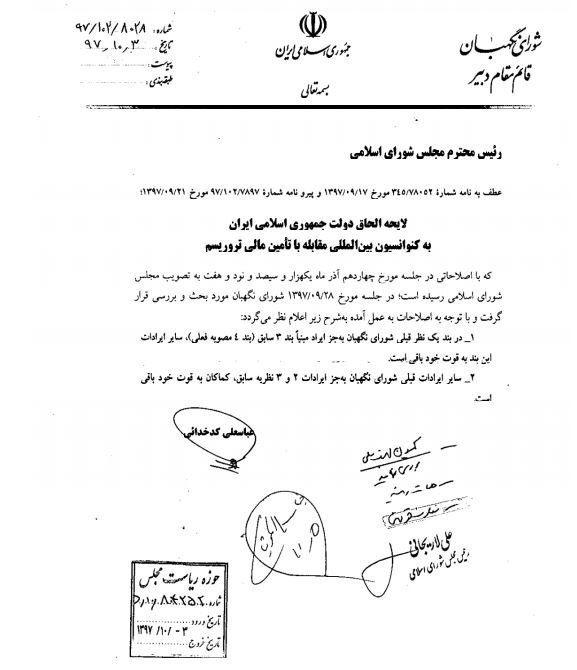 شورای نگهبان
قائم مقام دبیر
جمهوری اسلامی ایران
بسمه تعالی
شماره: ۹۷/۱۰۲/۸۰۲۸
تاریخ: ۹۷،۱۰،۳
پیوست:
طبقه‌بندی:
رئیس محترم مجلس شورای اسلامی
عطف به نامه شمارهٔ ۳۴۵/۷۸۰۵۲ مورخ ۱۳۹۷/۰۹/۱۷ و پیرو نامه شمارهٔ ۹۷/۱۰۲/۷۸۹۷ مورخ ۱۳۹۷/۰۹/۲۱؛
لایحه الحاق دولت جمهوری اسلامی ایران
به کنوانسیون بین‌المللی مقابله با تأمین مالی تروریسم
که با اصلاحاتی در جلسه مورخ چهاردهم آذر ماه یکهزار و سیصد و نود و هفت به تصویب مجلس
شورای اسلامی رسیده است؛ در جلسه مورخ ۱۳۹۷/۰۹/۲۸ شورای نگهبان مورد بحث و بررسی قرار
گرفت و با توجه به اصلاحات به عمل آمده به‌شرح زیر اعلام نظر می‌گردد:
۱_ در بند یک نظر قبلی شورای نگهبان به‌جز ایراد مبنیاً بند ۳ سابق (بند ۴ مصوبه فعلی)، سایر ایرادات
این بند به قوت خود باقی است.
۲_ سایر ایرادات قبلی شورای نگهبان به‌جز ایرادات ۲ و ۳ نظریه سابق، کماکان به قوت خود باقی
است.
عباسعلی کدخدائی
علی لاریجانی
رئیس مجلس شورای اسلامی
حوزه ریاست مجلس
شماره:
تاریخ ورود:
۱۳۹۷/۱۰/-۳
تاریخ خروج